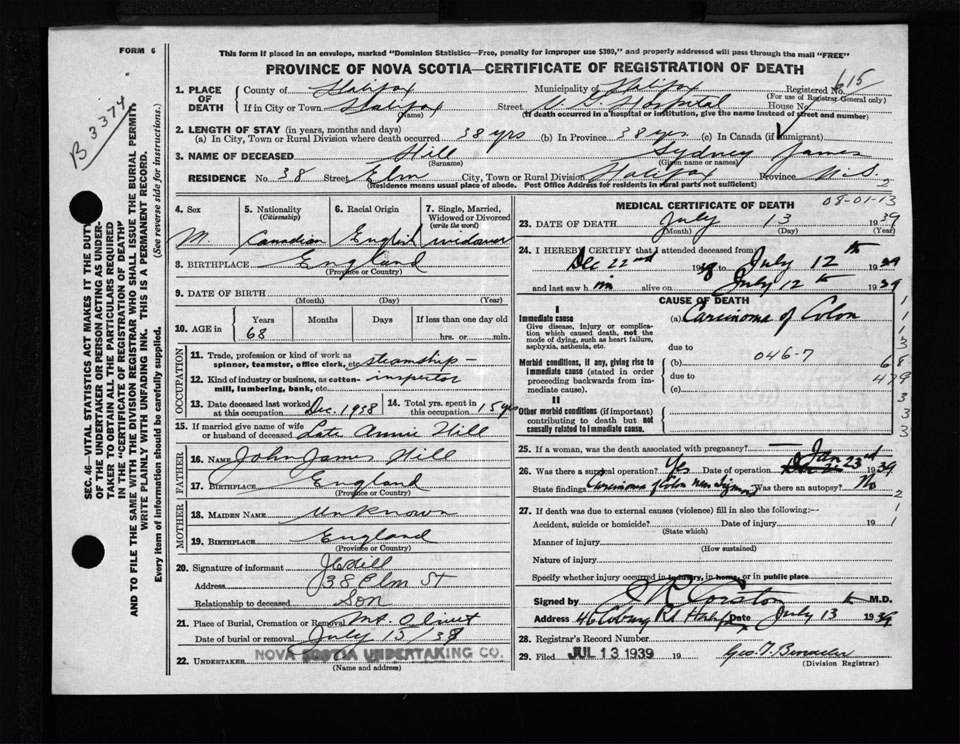 FORM 6
This form if placed in an envelope, marked "Dominion Statistics—Free, penalty for improper use $300," and properly addressed will pass through the mail "FREE"
PROVINCE OF NOVA SCOTIA—CERTIFICATE OF REGISTRATION OF DEATH
B 3374
SEC. 46—VITAL STATISTICS ACT MAKES IT THE DUTY
OF THE UNDERTAKER OR PERSON ACTING AS UNDER-
TAKER TO OBTAIN ALL THE PARTICULARS REQUIRED
IN THE "CERTIFICATE OF REGISTRATION OF DEATH"
AND TO FILE THE SAME WITH THE DIVISION REGISTRAR WHO SHALL ISSUE THE BURIAL PERMIT.
WRITE PLAINLY WITH UNFADING INK. THIS IS A PERMANENT RECORD.
Every item of information should be carefully supplied. (See reverse side for instructions.)
1. PLACE OF DEATH
County of Halifax Municipality of Hlifax Registered No. 615
(For use of Registrar General only)
If in City or Town Halifax Street V. G. Hospital House No.
(Name) (If death occurred in a hospital or institution, give the name instead of street and number)
2. LENGTH OF STAY (in years, months and days)
(a) In City, Town or Rural Division where death occurred 38 yrs (b) In Province 38 yrs (c) In Canada (if immigrant)
3. NAME OF DECEASED Hill Sydney James
(Surname) (Given name or names)
RESIDENCE No. 38 Street Elm City, Town or Rural Division Halifax Province N.S. 2
(Residence means usual place of abode. Post Office Address for residents in rural parts not sufficient)
4. Sex M
5. Nationality (Citizenship) Canadian
6. Racial Origin English
7. Single, Married, Widowed or Divorced (write the word) widower
8. BIRTHPLACE England
(Province or Country)
9. DATE OF BIRTH
(Month) (Day) (Year)
10. AGE in
Years Months Days If less than one day old
68 hrs. or min.
OCCUPATION
11. Trade, profession or kind of work as spinner, teamster, office clerk, etc. steamship -
12. Kind of industry or business, as cotton-mill, lumbering, bank, etc. inspector
13. Date deceased last worked at this occupation Dec. 1938 14. Total yrs. spent in this occupation 15 yrs
15. If married give name of wife or husband of deceased Late Annie Hill
FATHER
16. NAME John James Hill
17. BIRTHPLACE England
(Province or Country)
MOTHER
18. MAIDEN NAME Unknown
19. BIRTHPLACE England
(Province or Country)
20. Signature of informant Hill
Address 38 Elm St
Relationship to deceased Son
21. Place of Burial, Cremation or Removal Mt. Olivet
Date of burial or removal July 15/39
22. UNDERTAKER NOVA SCOTIA UNDERTAKING CO.
(Name and address)
MEDICAL CERTIFICATE OF DEATH 08-01-13
23. DATE OF DEATH July 13 1939
(Month) (Day) (Year)
24. I HEREBY CERTIFY that I attended deceased from
Dec 22nd 1938 to July 12th 1939
and last saw him alive on July 12th 1939
CAUSE OF DEATH
I
Immediate cause
Give disease, injury or complication which caused death, not the mode of dying, such as heart failure, asphyxia, asthenia, etc.
(a) Carcinoma of Colon
due to
Morbid conditions, if any, giving rise to immediate cause (stated in order proceeding backwards from immediate cause).
(b) 046-7
due to
(c)
II
Other morbid conditions (if important) contributing to death but not causally related to immediate cause.
1
1
1
3
68
479
3
3
3
25. If a woman, was the death associated with pregnancy? —
26. Was there a surgical operation? Yes Date of operation Jan 23rd 1939
State findings Carcinoma of Colon Was there an autopsy? No
2
27. If death was due to external causes (violence) fill in also the following:—
1
Accident, suicide or homicide? Date of injury 19
(State which)
Manner of injury
(How sustained)
Nature of injury
Specify whether injury occurred in industry, in home, or in public place
Signed by Corston M.D.
Address 46 Coburg Rd Date July 13 1939
28. Registrar's Record Number
29. Filed JUL 13 1939 19
(Division Registrar)